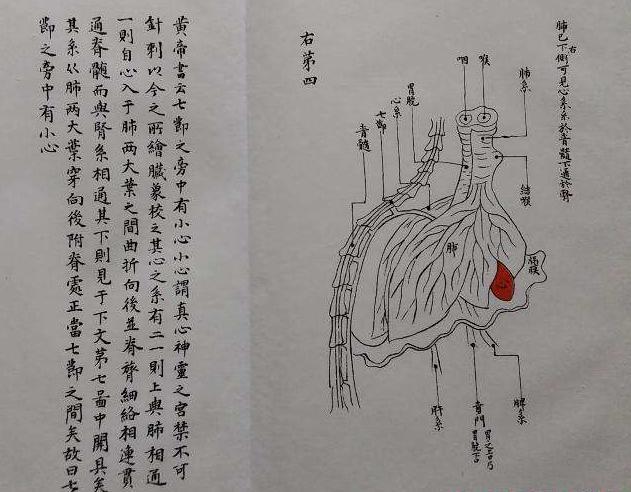 肺已下右側可見心系系於脊髓下通於腎
喉
咽
肺系
結喉
胃脘
心系
七節
脊髓
肺
膈膜
脾系
賁門
肝系
右第四
黄帝書云七節之旁中有小心小心謂真心神靈之宮禁不可
針刺以今之所繪臟象校之其心之系有二一則上與肺相通
一則自心入于肺两大葉之間曲折向後並脊膂細絡相連貫
通脊髓而與腎系相通其下則見于下文第七啚中開具矣
其系从肺两大葉穿向後附脊處正當七節之間矣故曰七
節之旁中有小心